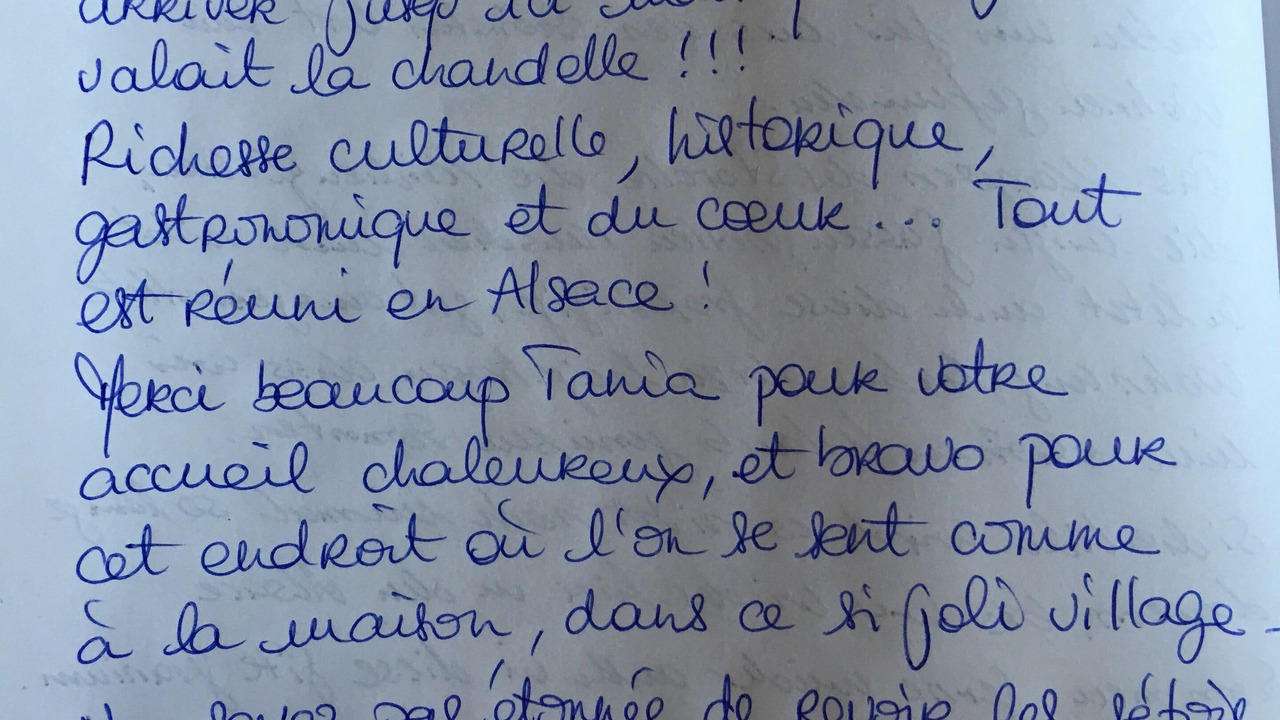 arriver jusqu'là
valait la chandelle !!!
Richesse culturelle, historique,
gastronomique et du coeur... Tout
est réuni en Alsace !
Merci beaucoup Tania pour votre
accueil chaleureux, et bravo pour
cet endroit où l'on se sent comme
à la maison, dans ce si joli village.
pas étonnée de revoir les